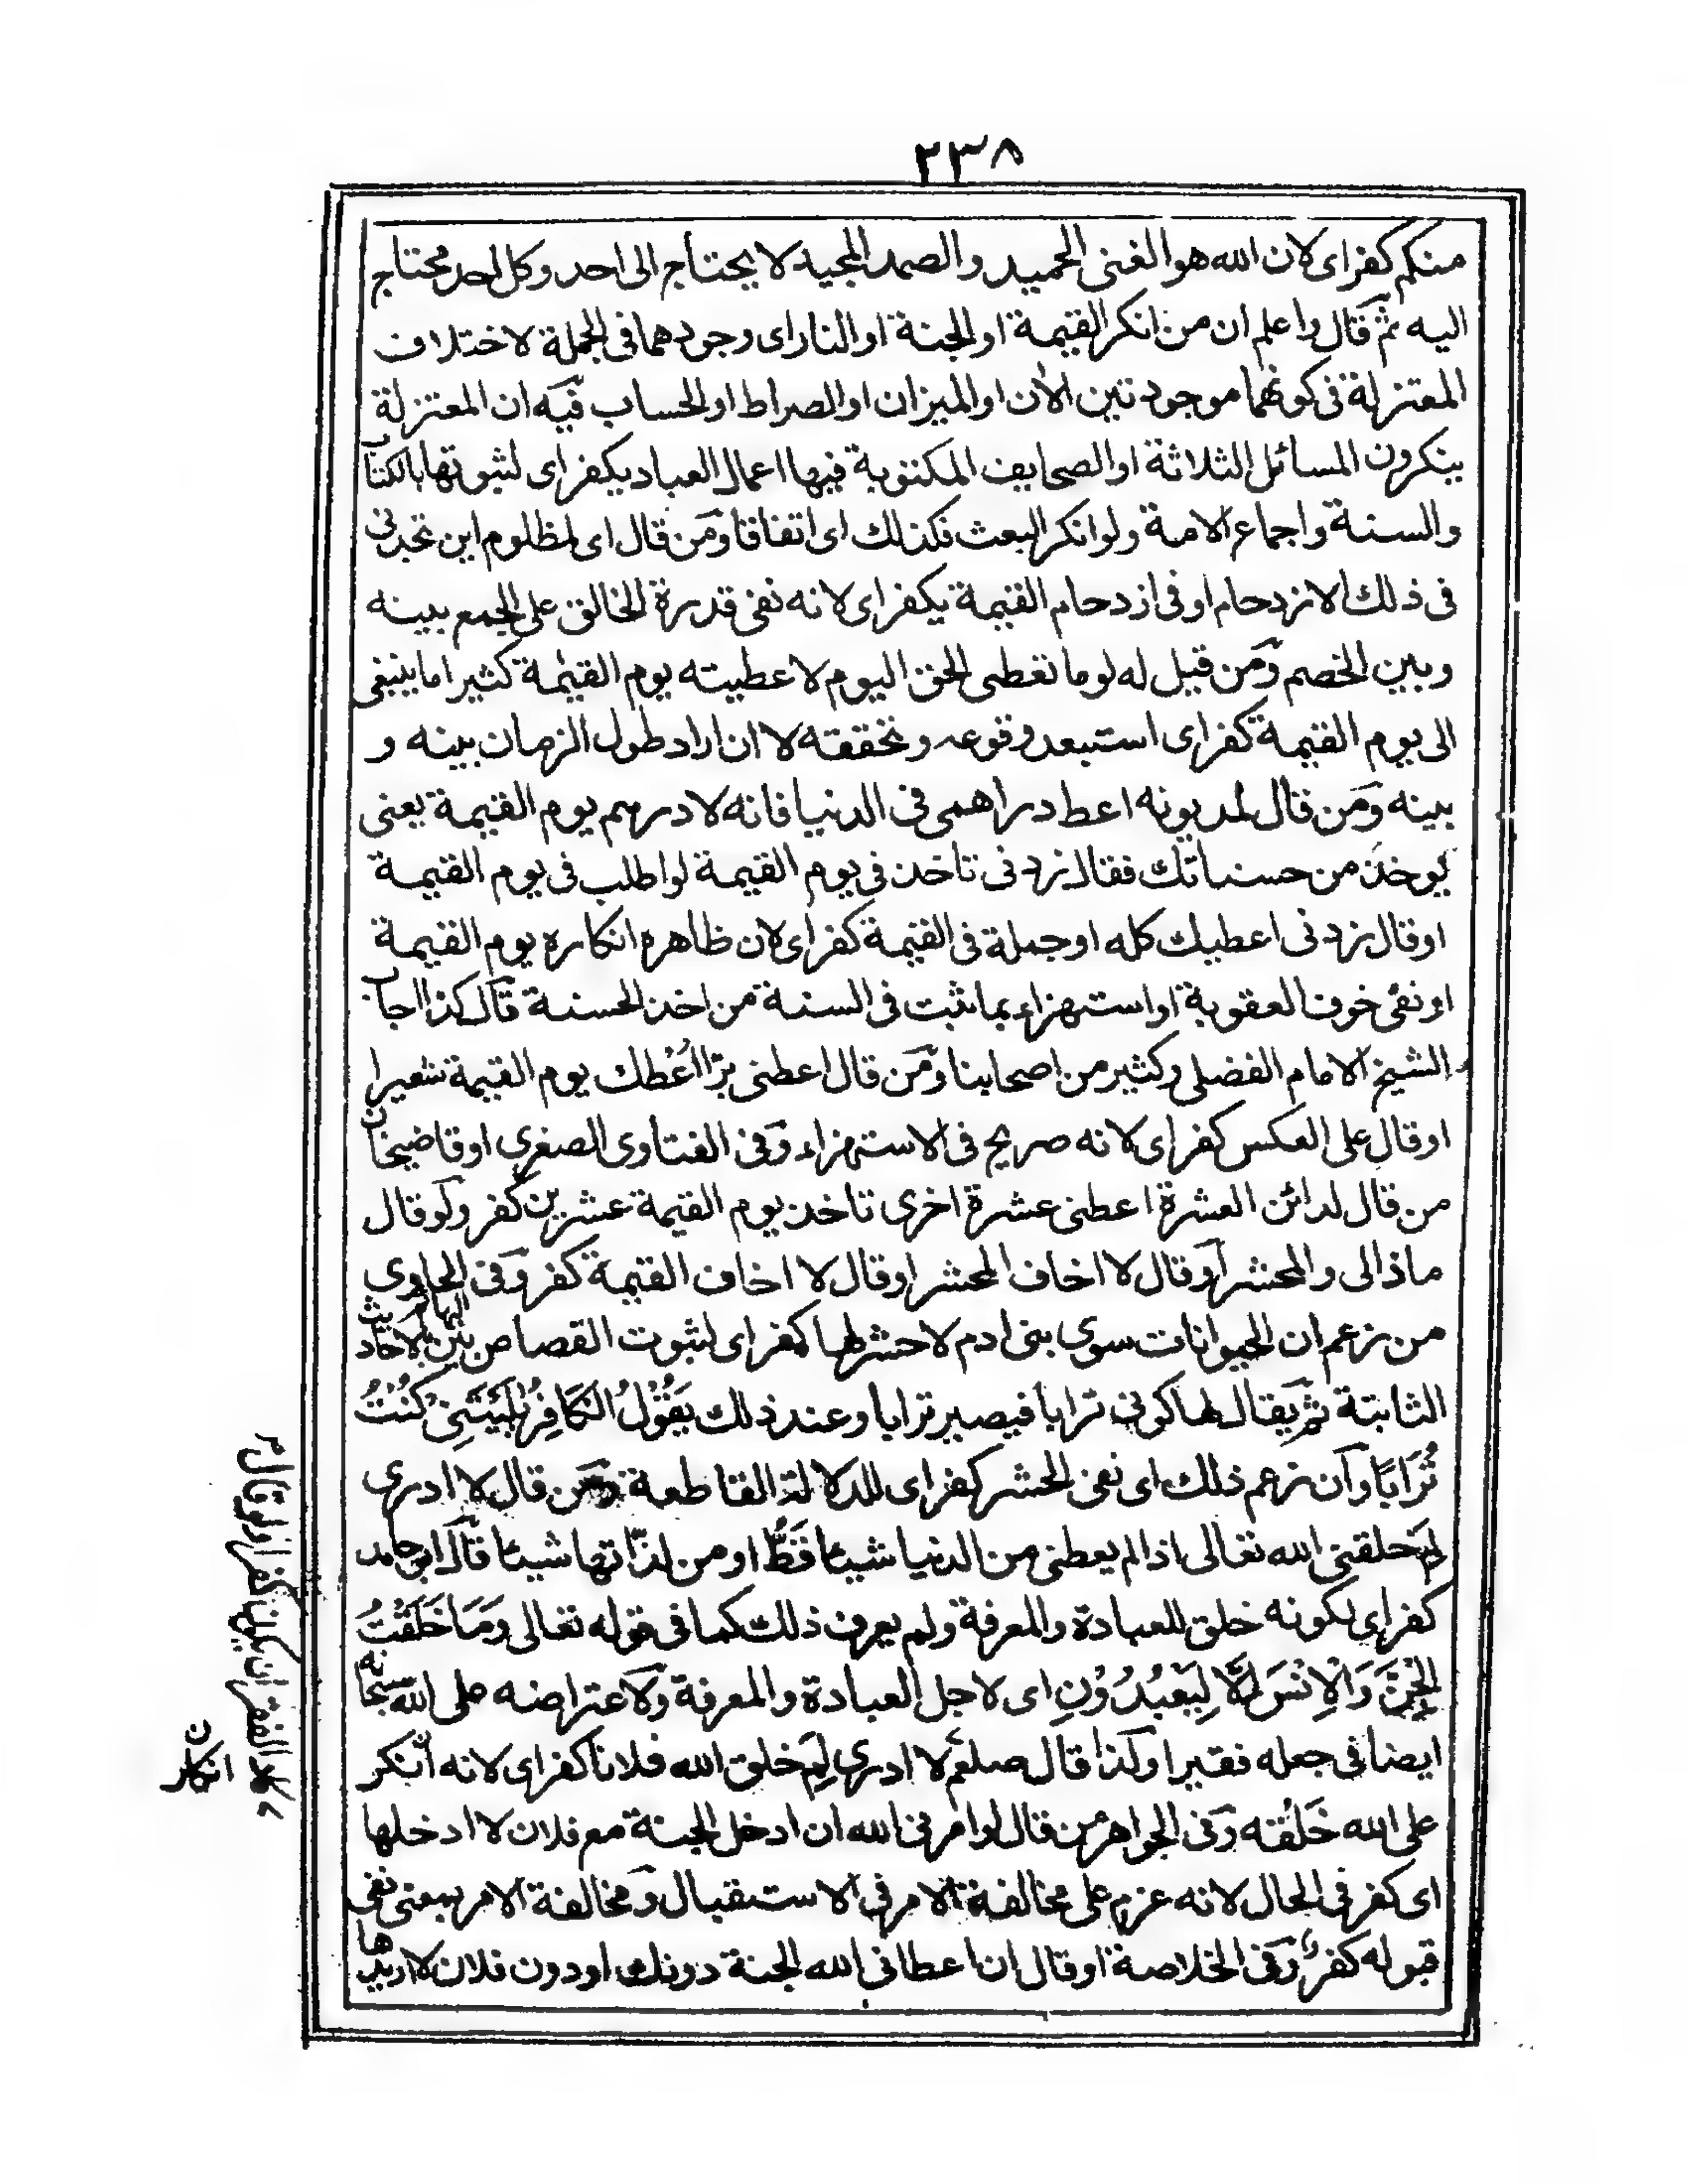 ٢٣٨
منكم كفر اى لان الله هو الغنى الحميد والصمد المجيد لا يحتاج الى احد وكل احد محتاج
اليه ثم قال واعلم ان من انكر القيمة او الجنة او النار اى وجودهما فى الجملة لاختلاف
المعتزلة فى كونهما موجودتين الأن او الميزان او الصراط او الحساب فيه ان المعتزلة
ينكرون المسائل الثلاثة او الصحايف المكتوبة فيها اعمال العباد يكفر اى لثبوتها بالكتاب
والسنة واجماع الامة ولو انكر البعث فكذلك اى اتفاقا ومن قال اى لمظلوم اين تجدنى
فى ذلك الازدحام او فى ازدحام القيمة يكفر اى لانه نفى قدرة الخالق على الجمع بينه
وبين الخصم ومن قيل له لو ما تعطى الحق اليوم لاعطيته يوم القيمة كثير اما ينبغى
الى يوم القيمة كفر اى استبعد وقوعه وتحققه لا ان اراد طول الزمان بينه و
بينه ومن قال لمديونه اعط دراهمى فى الدنيا فانه لا درهم يوم القيمة يعنى
يوخذ من حسناتك فقال زدنى تاخذ فى يوم القيمة لو اطلب فى يوم القيمة
او قال زدنى اعطيك كله او جملة فى القيمة كفر اى لان ظاهره انكاره يوم القيمة
او نفى خوف العقوبة او استهزاء بما ثبت فى السنة من اخذ الحسنة قال كذا اجاب
الشيخ الامام الفضلى وكثير من اصحابنا ومن قال اعطنى برّا اُعْطك يوم القيمة شعيرا
او قال على العكس كفر اى لانه صريح فى الاستهزاء وفى الفتاوى الصغرى او قاضيخان
من قال لدائن العشرة اعطنى عشرة اخرى تاخذ يوم القيمة عشرين كفر ولو قال
ماذا لى والمحشر او قال لا اخاف المحشر او قال لا اخاف القيمة كفر وفى الحاوى
من زعم ان الحيوانات سوى بنى ادم لا حشر لها كفر اى لثبوت القصاص بين البهائم بالاحاديث
الثابتة ثم يقال لها كونى ترابا فيصير ترابا وعند ذلك يَقُوْلُ الْكَافِرُ يٰلَيْتَنِىْ كُنْتُ
تُرَابًا وان زعم ذلك اى نفى الحشر كفر اى للدلالة القاطعة ومن قال لا ادرى
لِمَ خلقنى الله تعالى اذا لم يعطنى من الدنيا شيئا قَطُّ او من لذّاتها شيئا قال ابو حامد
كفر اى لكونه خلق للعبادة والمعرفة ولم يعرف ذلك كما فى قوله تعالى وَمَا خَلَقْتُ
الْجِنَّ وَالْاِنْسَ اِلَّا لِيَعْبُدُوْنِ اى لاجل العبادة والمعرفة ولاعتراضه على الله سبحانه
ايضا فى جعله فقيرا وكذا قال لا ادرى لِمَ خلق الله فلانا كفر اى لانه أنكر
على الله خَلْقَه وفى الجواهر من قال لو امرنى الله ان ادخل الجنة مع فلان لا ادخلها
اى كفر فى الحال لانه عزم على مخالفة الامر فى الاستقبال ومخالفة الامر بمعنى نفى
قبوله كفر وفى الخلاصة او قال ان اعطانى الله الجنة دونك او دون فلان لا اريدها